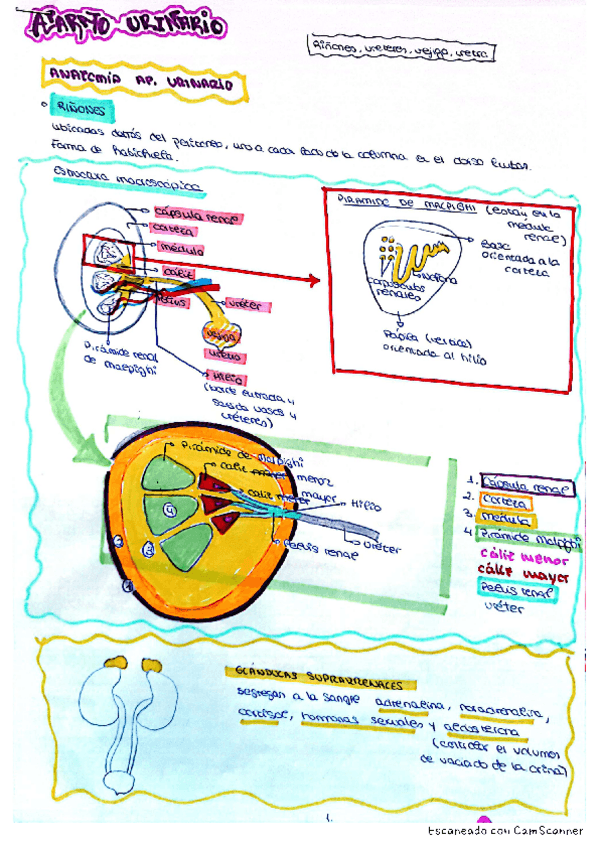 APARATO URINARIO
Riñones, uréteres, vejiga, uretra.
ANATOMÍA AP. URINARIO
RIÑONES
ubicadas detrás del peritoneo, uno a cada lado de la columna en el dorso lumbar.
Forma de habichuela.
Estructura macroscópica
cápsula renal
corteza
médula
cáliz
pelvis
uréter
vejiga
uretra
Hilio
(borde entrada y
salida vasos y
uréteres)
Pirámide renal
de malpighi
PIRÁMIDE DE MALPIGHI (están en la
médula
renal)
Base
orientada a la
corteza
nefrona
corpúsculos
renales
Papila (vértice)
orientada al hilio
Pirámide de Malpighi
caliz menor
caliz mayor
Hilio
uréter
Pelvis renal
1
2
3
4
1. Cápsula renal
2. corteza
3. médula
4 Pirámide Malpighi
cáliz menor
cáliz mayor
Pelvis renal
uréter
GLÁNDULAS SUPRARRENALES
segregan a la sangre adrenalina, noradrenalina,
cortisol, hormonas sexuales y aldosterona
(controlar el volumen
de vaciado de la orina)
1.
Escaneado con CamScanner